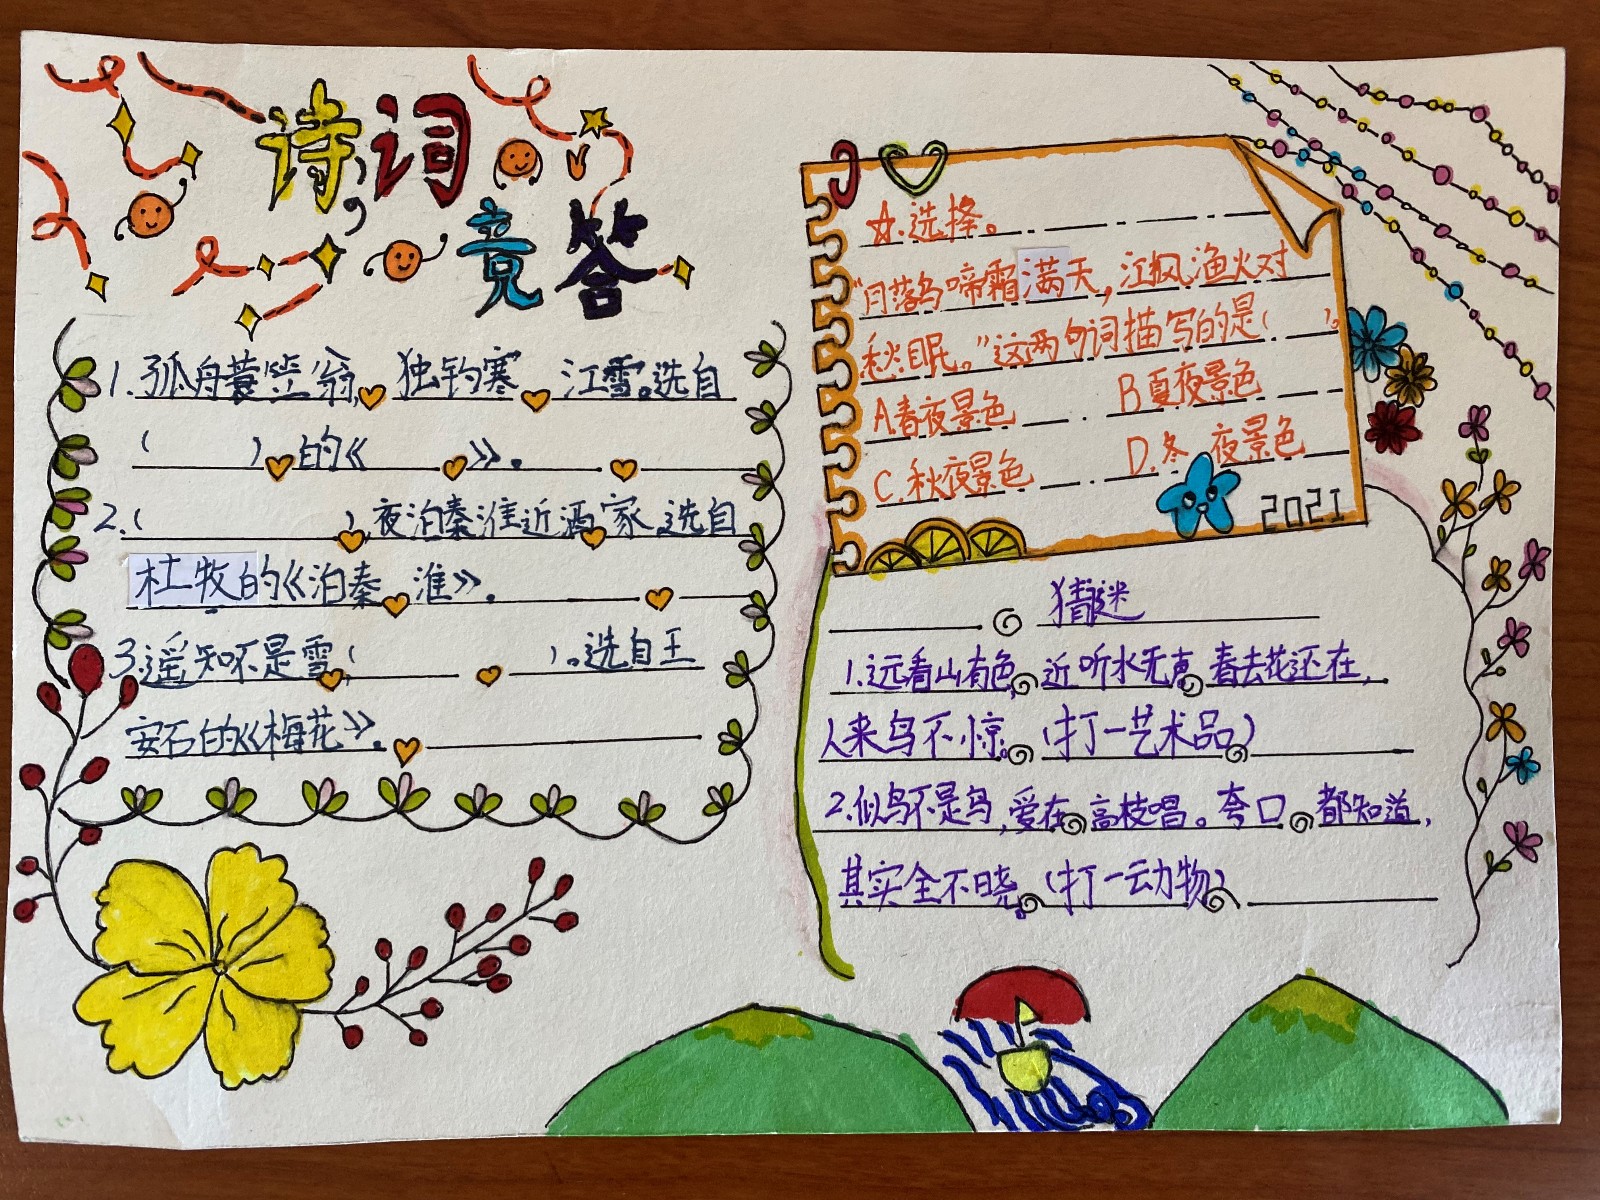 诗词
竞答
1.孤舟蓑笠翁,独钓寒江雪。选自
( )的《 》.
2.( ),夜泊秦淮近酒家.选自
杜牧的《泊秦淮》.
3.遥知不是雪,( )。选自王
安石的《梅花》.
☆.选择。
“月落乌啼霜满天,江枫渔火对
愁眠。”这两句词描写的是( )。
A.春夜景色 B夏夜景色
C.秋夜景色 D.冬夜景色
2021
猜谜
1.远看山有色,近听水无声,春去花还在,
人来鸟不惊。(打一艺术品)
2.似鸟不是鸟,爱在高枝唱。夸口都知道,
其实全不晓。(打一动物)